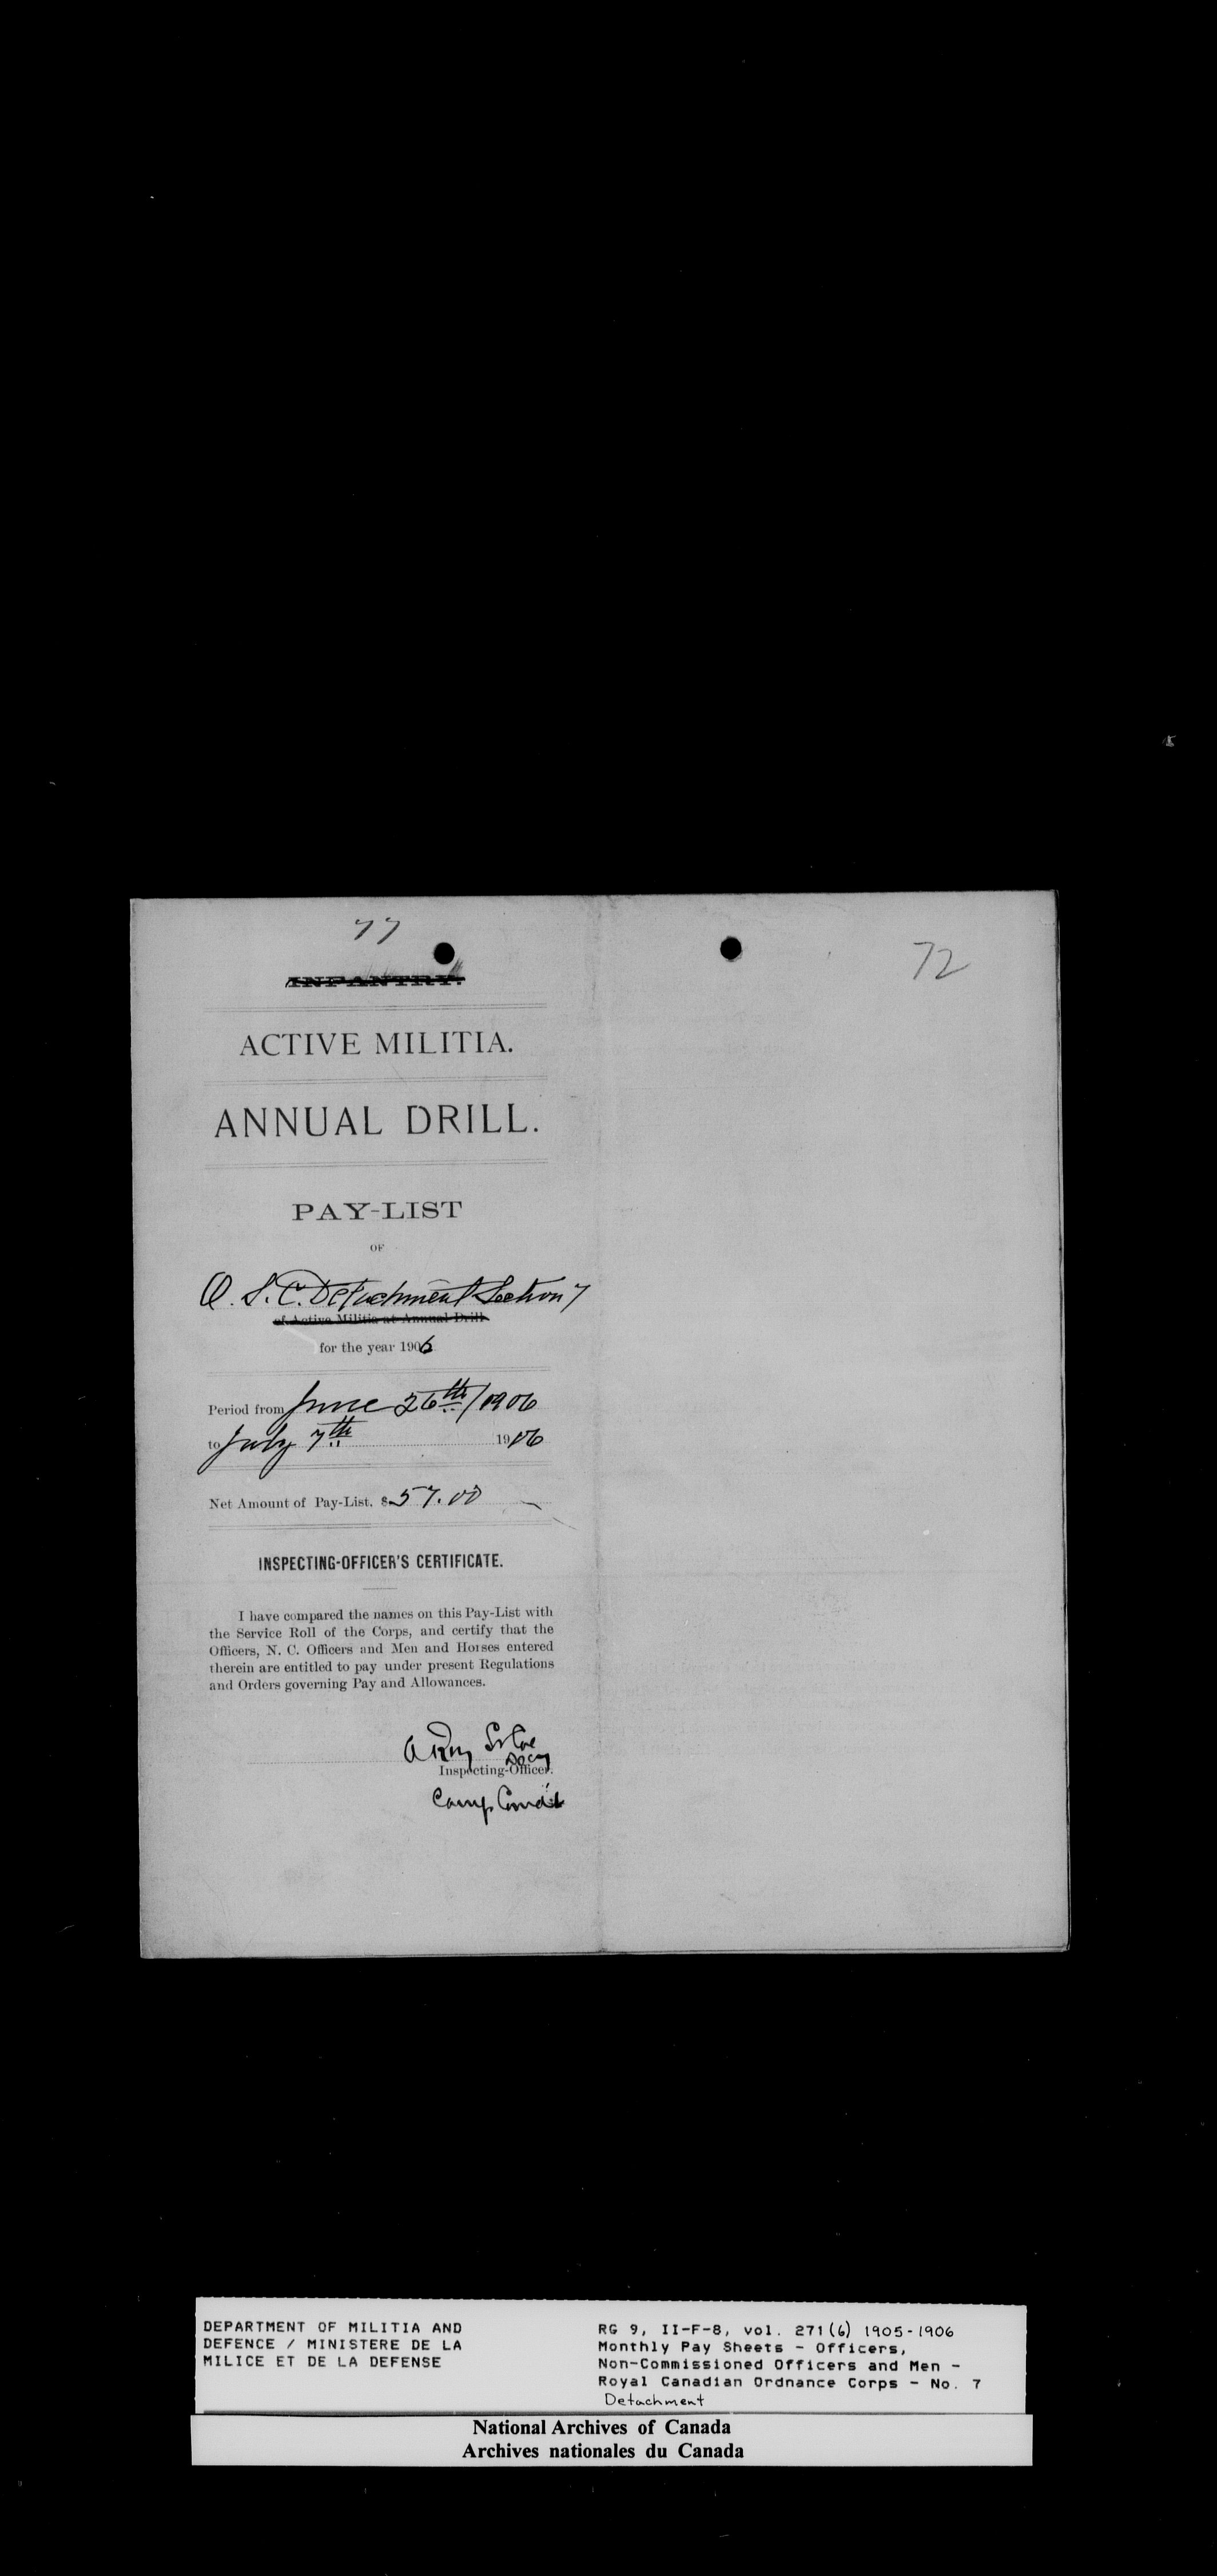 77
72
INFANTRY.
ACTIVE MILITIA.
ANNUAL DRILL.
PAY-LIST
OF
O. S. C. Detachment Section 7
of Active Militia at Annual Drill
for the year 1906
Period from June 26th/1906
to July 7th 1906
Net Amount of Pay-List. $57.00
INSPECTING-OFFICER'S CERTIFICATE.
I have compared the names on this Pay-List with
the Service Roll of the Corps, and certify that the
Officers, N. C. Officers and Men and Horses entered
therein are entitled to pay under present Regulations
and Orders governing Pay and Allowances.
A Roy Lt Col
Inspecting-Officer.
Camp
DEPARTMENT OF MILITIA AND
DEFENCE / MINISTERE DE LA
MILICE ET DE LA DEFENSE
RG 9, II-F-8, vol. 271(6) 1905-1906
Monthly Pay Sheets - Officers,
Non-Commissioned Officers and Men -
Royal Canadian Ordnance Corps - No. 7
Detachment
National Archives of Canada
Archives nationales du Canada